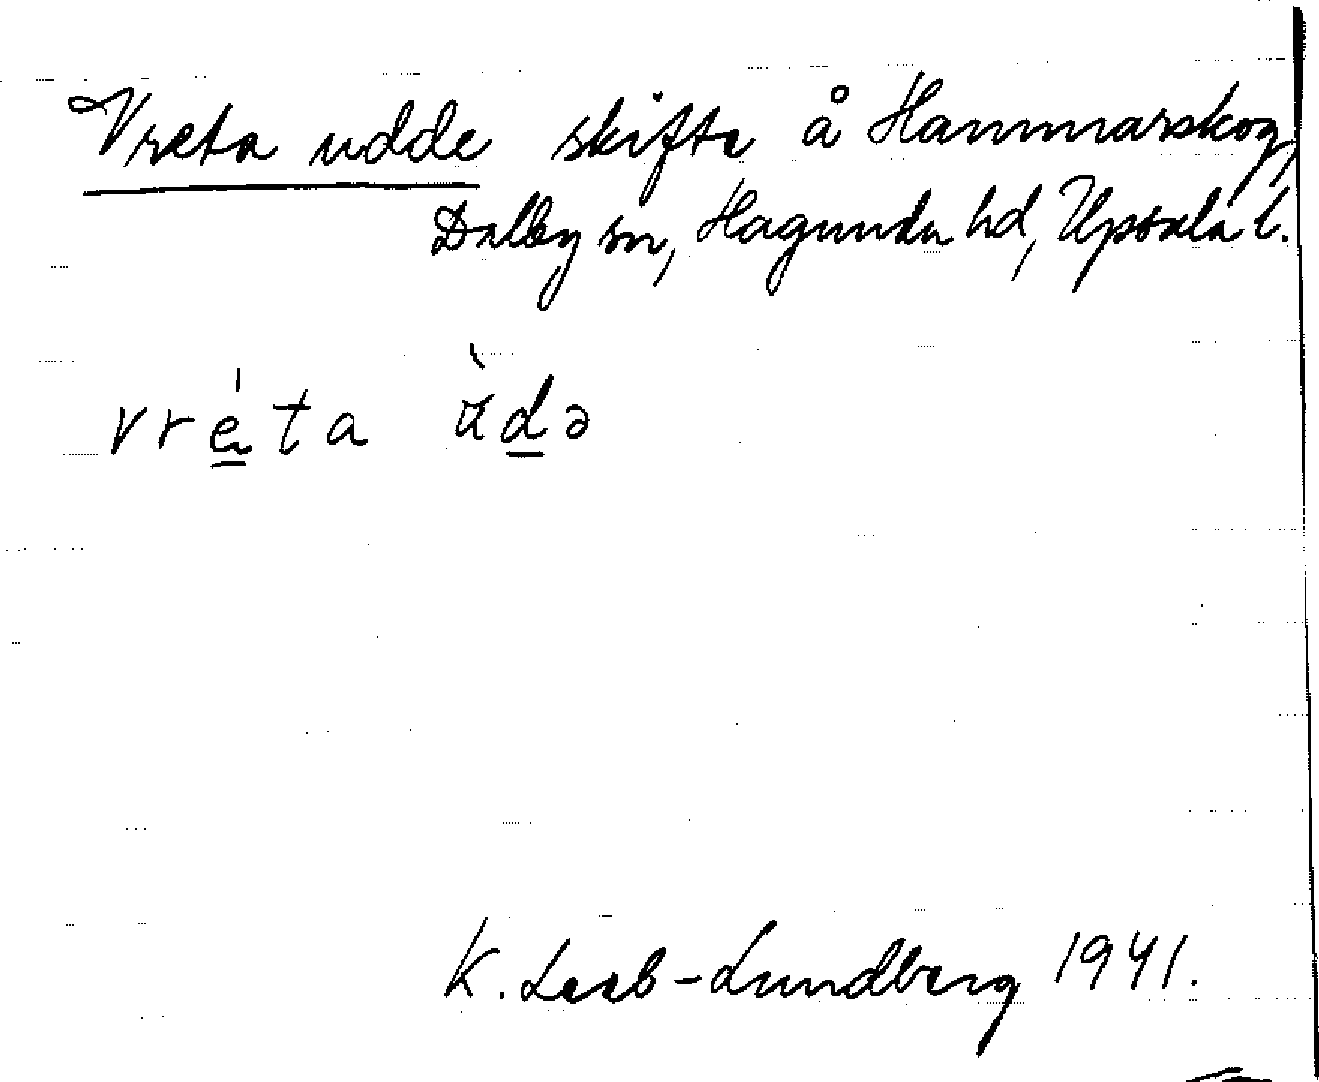 Vreta udde skifte å Hammarskog,
Dalby sn, Hagunda hd, Upsala l.
vréta ùdə
K. Leeb-Lundberg 1941.